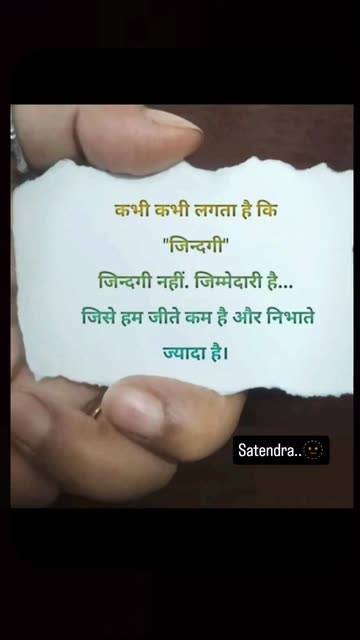 कभी कभी लगता है कि
"जिन्दगी"
जिन्दगी नहीं. जिम्मेदारी है...
जिसे हम जीते कम है और निभाते
ज्यादा है।
Satendra..